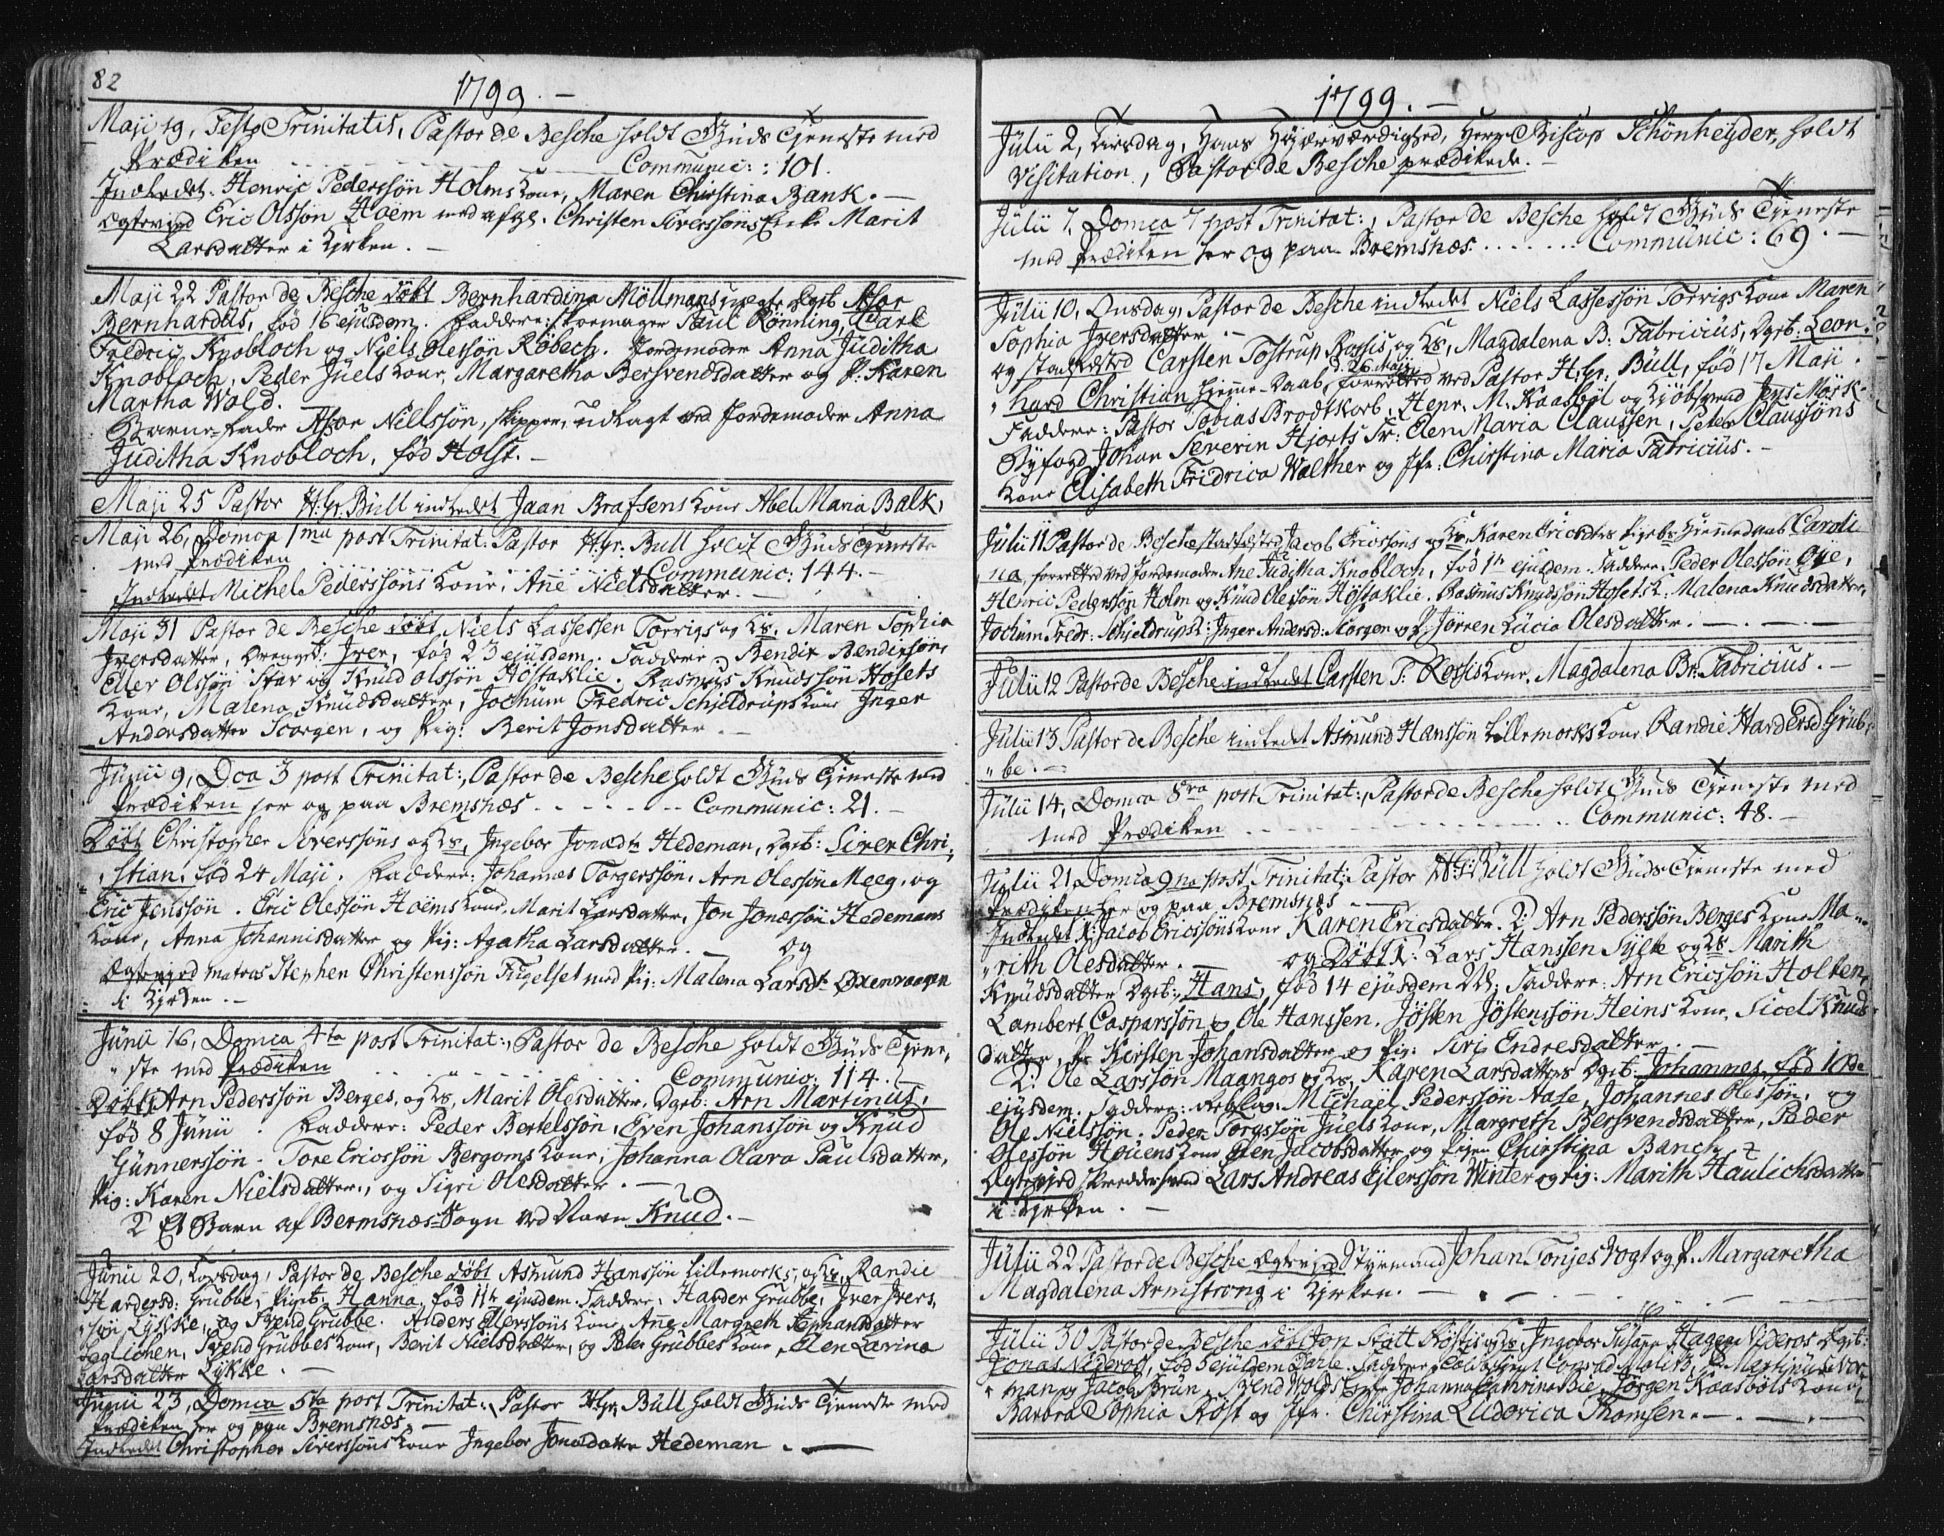 82
1799. —
Maji 19, Festo Trinitatis, Pastor de Besche holdt Guds Tjeneste med
Prædiken . . . . . . Communic: : 101.
Indledet Henric Pederssøn Holms Kone, Maren Christina Bank. —
Egtevied Eric Olssøn Hoëm med afg. Christen Siverssøns Enke Marit
Larsdatter i Kirken. —
Maji 22 Pastor de Besche døbt Bernhardina Möllmans uegte Dgb Asor
Bernhardus, fød 16 ejusdem. Faddere: Skomager Paul Rønning, Carl
Fredric Knobloch og Niels Olessøn Røbech. Jordemoder Anna Juditha
Knobloch, Peder Juels Kone, Margaretha Bersvendsdatter og P. Karen
Martha Wold.
Barne-Fader Asor Nielssøn, Skipper, udlagt ved Jordemoder Anna
Juditha Knobloch, fød Holst. —
Maji 25 Pastor H: Gr. Bull indledet Jaan Brafsens Kone Abel Maria Balk.
Maji 26, Domca 1ma post Trinitat: Pastor H. Gr. Bull holdt Guds Tjeneste
med Prædiken . . . . . . Communic: 144. —
Indledet Michel Pederssøns Kone, Ane Nielsdatter. —
Maji 31 Pastor de Besche døbt Niels Lassessen Torvigs og Ks. Maren Sophia
Iversdatter, Drengeb: Iver, fød 23 ejusdem. Faddere: Bendix Bendixsøn,
Eller Olssøn Star og Knud Olssøn Hostaklie. Rasmus Knudssøn Hosets
Kone, Malena Knudsdatter, Jochum Fredric Schjeldrups Kone Inger
Andersdatter Scorgen, og Pig: Berit Jonsdatter. —
Junii 9, Dca 3 post Trinitat:, Pastor de Besche holdt Guds Tjeneste med
Prædiken her og paa Bremsnæs . . . . . . Communic: 21. —
Døbt Christopher Siverssøns og Ks, Ingebor Jonsdtr Hedeman, Dgb: Siver Chri-
stian, fød 24 Maji. Faddere: Johannes Torgerssøn, Arn Olessøn Meeg, og
Eric Joilssøn. Eric Olessøn Hoëms Kone, Marit Larsdatter, Jon Jonessøn Hedemans
Kone, Anna Johannisdatter og Pig: Agatha Larsdatter. — og
Egtevied Matros Stephen Christenssøn Fugelset med Pig: Malena Larsdr Oxenvaagen
i Kirken. —
Junii 16, Domca 4ta post Trinitat:, Pastor de Besche holdt Guds Tjene-
ste med Prædiken . . . . . . Communic. 114. —
Døbt 1 Arn Pederssøn Berges, og Ks, Marit Olesdatter, Dgb: Arn Martinus,
fød 8 Junii. Faddere: Peder Bertelssøn, Even Johanssøn og Knud
Gunnerssøn. Tore Ericssøn Bergoms Kone, Johanna Olara Paulsdatter,
Pig: Karen Nielsdatter, og Sigri Olesdatter. —
2 Et Barn af Bermsnæs-Sogn ved Navn Knud. —
Junii 20, Torsdag, Pastor de Besche døbt Asmund Hanssøn Lillemorks, og Ks, Randie
Hardersd: Grubbe, Pigeb: Hanna, fød 11te ejusdem. Faddere, Harder Grubbe, Iver Ivers-
søn Lykke, og Svend Grubbe. Anders Ellerssøns Kone, Ane Margreth Stephansdatter
Leglichen, Svend Grubbes Kone, Berit Nielsdatter, og Peder Grubbes Kone, Elen Larina
Larsdatter Lykke. —
Junii 23, Domca 5ta post Trinitat:, Pastor H: Gr. Bull holdt Guds Tjeneste med
Prædiken her og paa Bremsnæs. —
Indledet Christopher Siverssøns Kone Ingebor Jonsdatter Hedeman. —
1799. —
Julii 2, Tirsdag, Hans Højærværdighed, Herr Biscop Schönheyder, holdt
Visitation, Pastor de Besche prædikede. —
Julii 7, Domca 7 post Trinitat:, Pastor de Besche holdt Guds Tjeneste
med Prædiken her og paa Bremsnæs. . . . . . Communic: 69. —
Julii 10, Onsdag, Pastor de Besche indledet Niels Lassessøn Torvigs Kone Maren
Sophia Iversdatter. —
og stadfæsted Carsten Tostrup Rossis, og Ks, Magdalena B: Fabricius, Dgb: Leon-
d. 26 Maji
hard Christian Hjemme-Daab, forretted ved Pastor H: Gr: Bull, fød 17 Maji.
Faddere: Pastor Tobias Brodtkorb, Henr. M. Kaasbøl og Kjøbsvend Jens Mørk-
Byfogd Johan Severin Hjorts Fr: Elen Maria Claussen, Peter Claussøns
Kone Elisabeth Fridrica Walther og Jfr: Christina Maria Fabricius. —
Julii 11 Pastor de Besche stadfæsted Jacob Ericssøns og Ks, Karen Ericsdtrs Pigebs Hjemmedaab Caroli-
na, forretted ved Jordemoder Ane Juditha Knobloch, fød 1te ejusdem. Faddere: Peder Olessøn Øye,
Henric Pederssøn Holm og Knud Olessøn Hostaklie. Rasmus Knudssøn Hosets K: Malena Knudsdatter,
Jochum Fredr: Schjeldrups K: Inger Andersd: Scorgen og P: Jørren Lucia Olesdatter. —
Julii 12 Pastor de Besche indledet Carsten T: Rossis Kone, Magdalena Br: Fabricius. —
Julii 13 Pastor de Besche indledet Asmund Hanssøn Lillemorks Kone Randie Hardersd Grub-
be. —
Julii 14, Domca 8va post Trinitat:, Pastor de Besche holdt Guds Tjeneste med
med Prædiken . . . . . . Communic: 48. —
Julii 21, Domca 9na post Trinitat: Pastor H: G: Bull holdt Guds Tjeneste med
Prædiken her og paa Bremsnæs —
Indledet 1: Jacob Ericssøns Kone Karen Ericsdatter. 2: Arn Pederssøn Berges Kone Ma-
rith Olesdatter. — og Døbt 1: Lars Hanssen Syltes og Ks. Marith
Knudsdatter Dgb: Hans, fød 14 ejusdem. Faddere: Arn Ericssøn Holten,
Lambert Casparssøn og Ole Hanssen. Jøsten Jøstenssøn Heins Kone, Sicel Knuds-
datter, P. Kirsten Johansdatter og Pig: Siri Endresdatter. —
2: Ole Larssøn Maangos og Ks, Karen Larsdatters Dgb: Johannes, fød 10de
ejusdem. Faddere: Michael Pederssøn Aase, Johannes Olessøn, og
Ole Nielssøn. Peder Torgssøn Juels Kone, Margreth Bersvendsdatter, Peder
Olessøn Houens Kone Elen Jacobsdatter og Pigen Christina Banch.
Egtevied Skredersvend Lars Andreas Ejlerssøn Winter og Pig: Marith Haulichsdatter
i Kirken. —
Julii 22 Pastor de Besche Egtevied Styrmand Johan Tonjes Vogt og P. Margaretha
Magdalena Armstrong i Kirken. —
Julii 30 Pastor de Besche døbt Jon Stølt Røstis og Ks, Ingebor Susanna Hagen Videros Dgb:
Jonas Viderøe, fød 5 ejusdem. Faddere: Conrad Moltz, Martinus Wor-
man og Jacob Brun. Svend Wolds Enke Johanna Cathrina Bie, Jørgen Kaasbøls Kone,
Barbra Sophia Røst og Jfr. Christina Luderica Thomsen. —